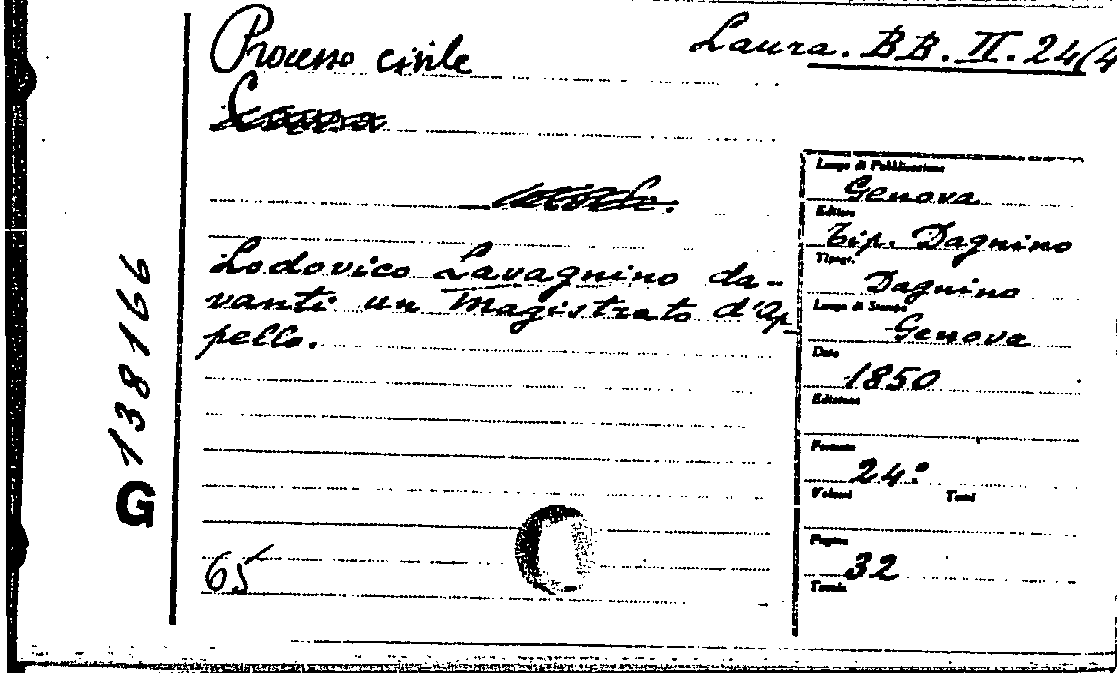 Processo civile
Laura. BB. II. 24(4
Lodovico Lavagnino da-
vanti un Magistrato d'Ap-
pello.
65
G 138166
Luogo di Pubblicazione
Genova
Editore
Tip. Dagnino
Tipogr.
Dagnino
Luogo di Stampa
Genova
Data
1850
Edizione
Formato
24°
Volumi Tomi
Pagine
32
Tavole